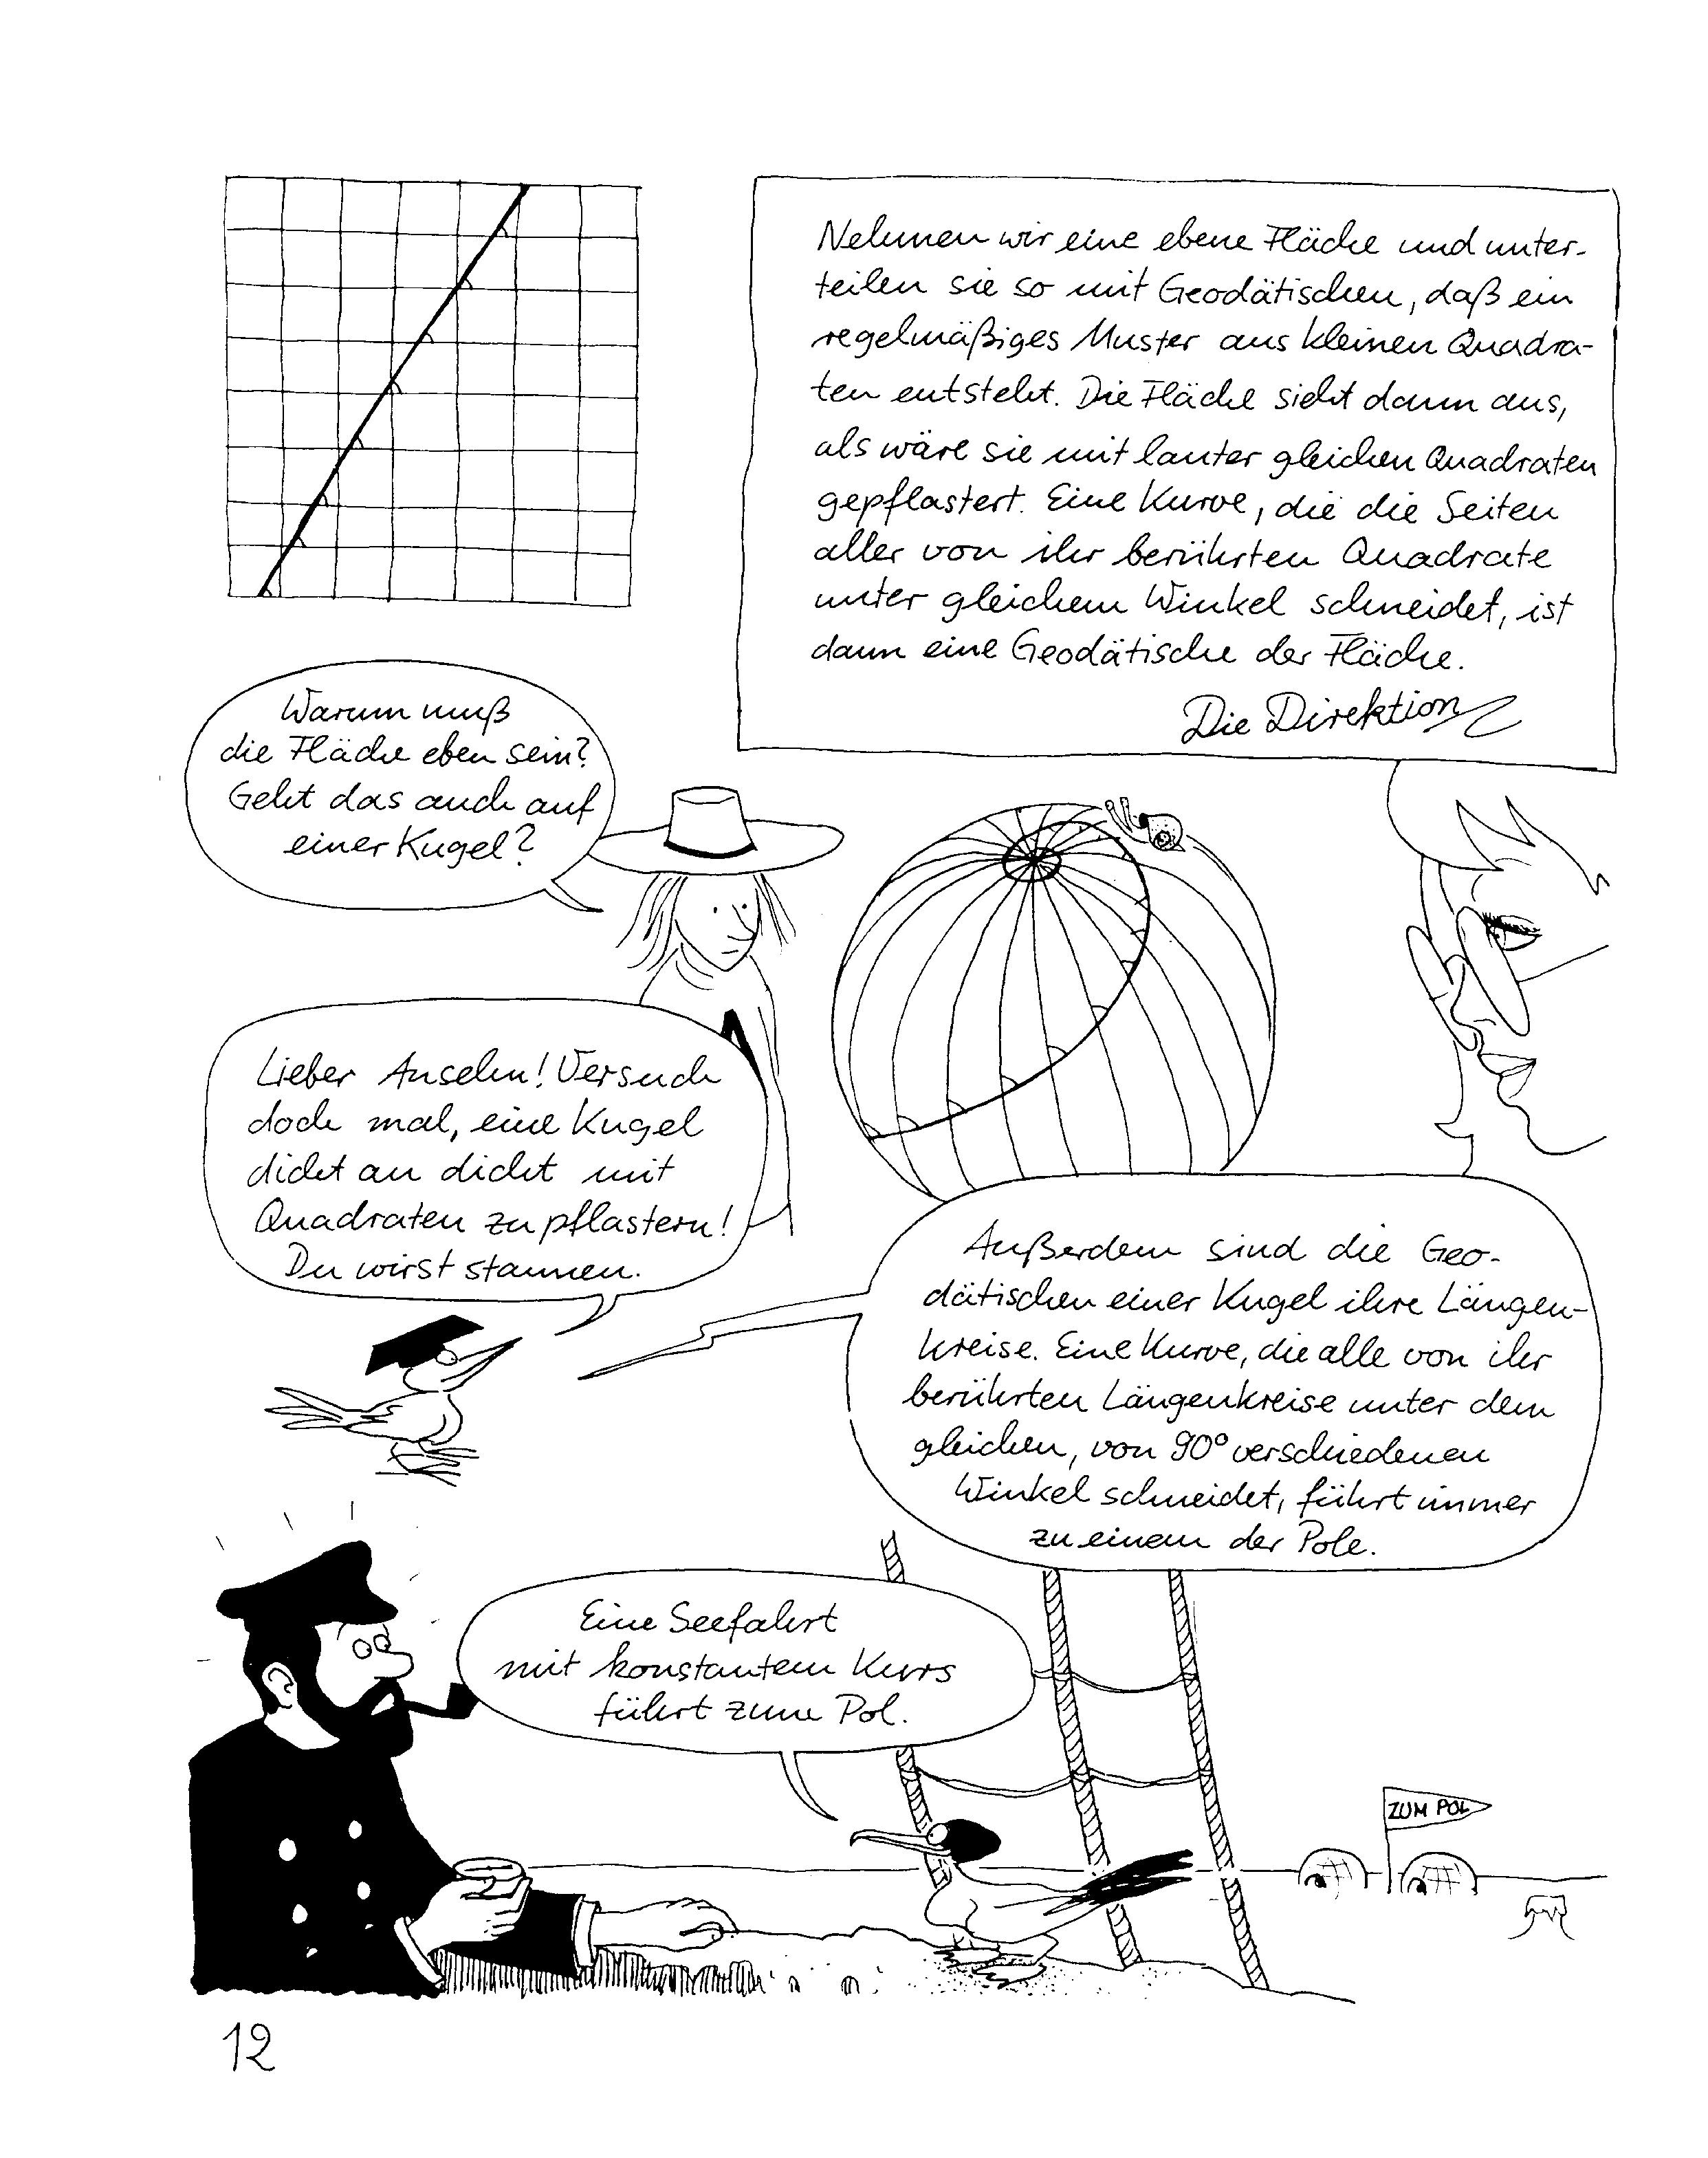 Nehmen wir eine ebene Fläche und unter-
teilen sie so mit Geodätischen, daß ein
regelmäßiges Muster aus kleinen Quadra-
ten entsteht. Die Fläche sieht dann aus,
als wäre sie mit lauter gleichen Quadraten
gepflastert. Eine Kurve, die die Seiten
aller von ihr berührten Quadrate
unter gleichem Winkel schneidet, ist
dann eine Geodätische der Fläche.
Die Direktion
Warum muß
die Fläche eben sein?
Geht das auch auf
einer Kugel?
Lieber Anselm! Versuch
doch mal, eine Kugel
dicht an dicht mit
Quadraten zu pflastern!
Du wirst staunen.
Außerdem sind die Geo-
dätischen einer Kugel ihre Längen-
kreise. Eine Kurve, die alle von ihr
berührten Längenkreise unter dem
gleichen, von 90° verschiedenen
Winkel schneidet, führt immer
zu einem der Pole.
Eine Seefahrt
mit konstantem Kurs
führt zum Pol.
ZUM POL
12